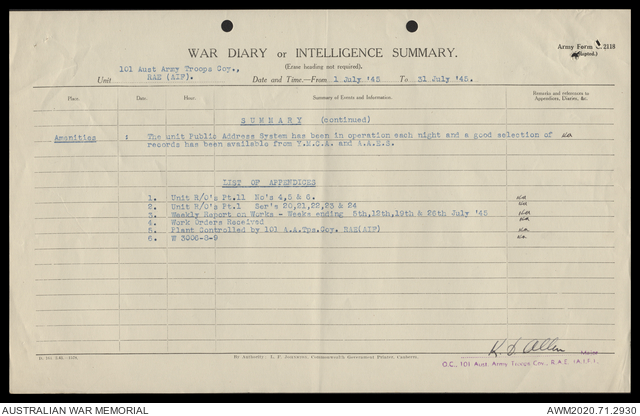 WAR DIARY or INTELLIGENCE SUMMARY.
Army Form C. 2118
(Erase heading not required).
101 Aust Army Troops Coy.,
Unit RAE (AIF). Date and Time.—From 1 July '45 To 31 July '45.
Place. Date. Hour. Summary of Events and Information. Remarks and references to
Appendices, Diaries, &c.
SUMMARY (continued)
Amenities : The unit Public Address System has been in operation each night and a good selection of
records has been available from Y.M.C.A. and A.A.E.S.
LIST OF APPENDICES
1. Unit R/O's Pt.11 No's 4,5 & 6.
2. Unit R/O's Pt.1 Ser's 20,21,22,23 & 24
3. Weekly Report on Works - Weeks ending 5th,12th,19th & 26th July '45
4. Work Orders Received
5. Plant Controlled by 101 A.A.Tps.Coy. RAE(AIF)
6. W 3006-8-9
K D Allen Major
O.C., 101 Aust. Army Troops Coy., R.A.E. (A.I.F.).
By Authority: L. F. Johnston, Commonwealth Government Printer, Canberra.
AUSTRALIAN WAR MEMORIAL AWM2020.71.2930